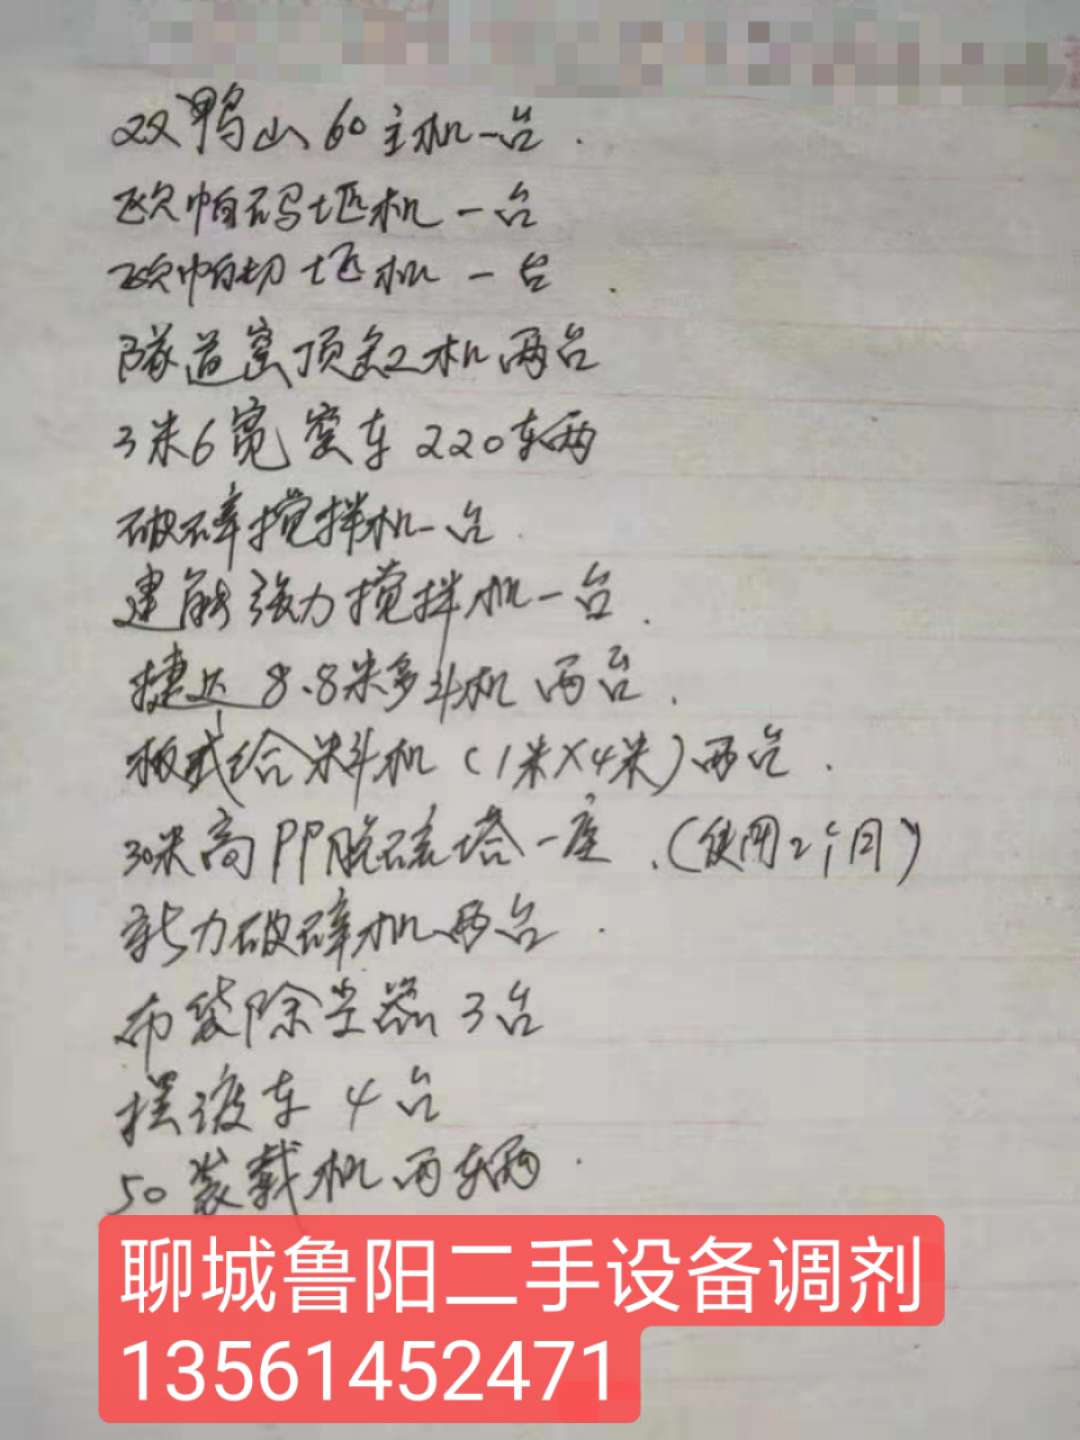 双鸭山60主机一台.
欧帕码坯机一台
欧帕切坯机一台.
隧道窑顶车机两台
3米6宽窑车220车辆
破碎搅拌机一台.
建能强力搅拌机一台.
捷达8.8米多斗机两台.
板式给料机(1米X4米)两台.
30米高PP脱硫塔一座.(使用2个月)
新力破碎机两台.
布袋除尘器3台
摆渡车4台
50装载机两车辆.
聊城鲁阳二手设备调剂
13561452471